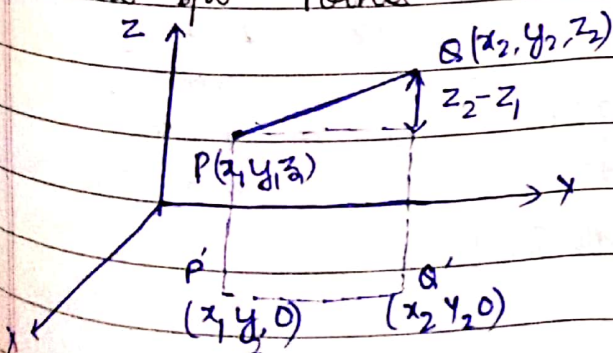 Z
Q(x₂, y₂, z₂)
z₂-z₁
P(x₁ y₁ z₁)
Y
P' Q'
(x₁ y, 0) (x₂ y₂ 0)
X